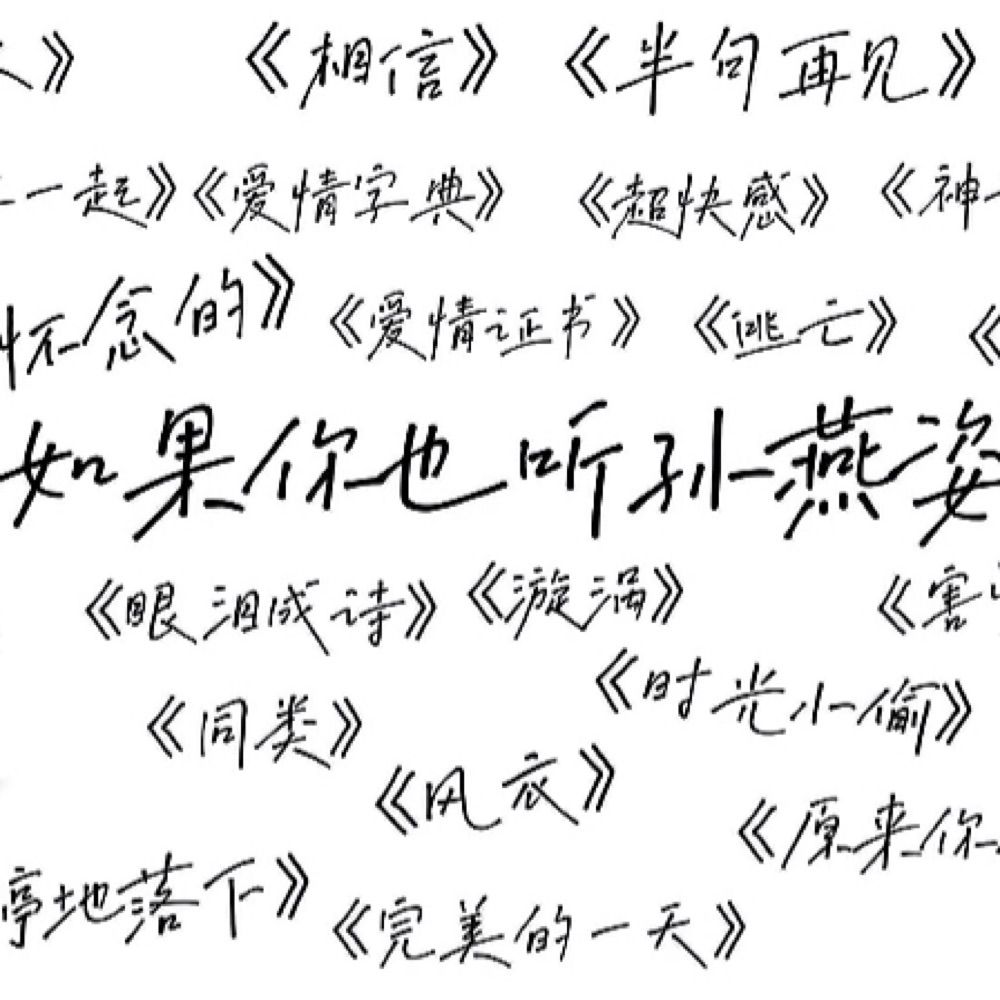 》 《相信》 《半句再见》
一起》《爱情字典》 《超快感》 《神
怀念的》 《爱情证书》 《逃亡》 《
如果你也听孙燕姿
《眼泪成诗》 《漩涡》 《害
《同类》 《时光小偷》
《风衣》
《原来你
停地落下》 《完美的一天》